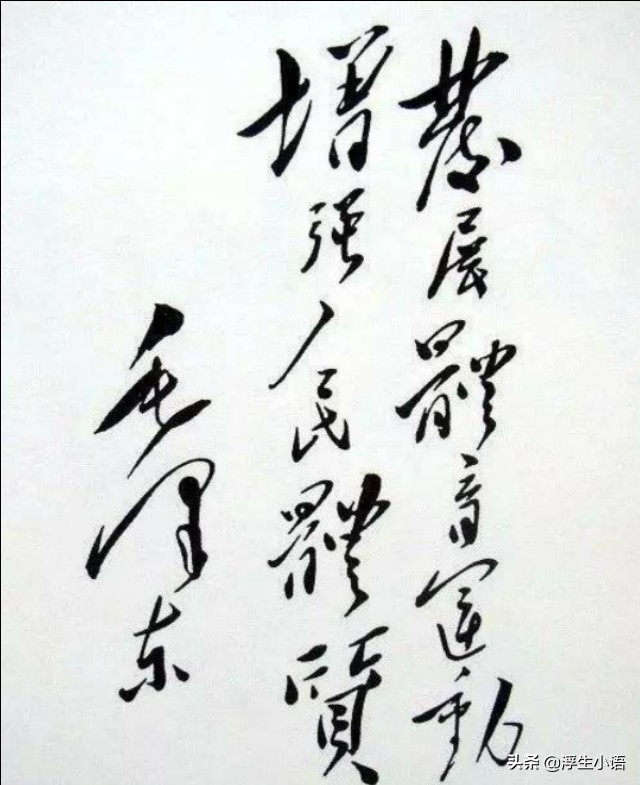 發展體育運動
增强人民體質
毛泽东
头条 @浮生小语